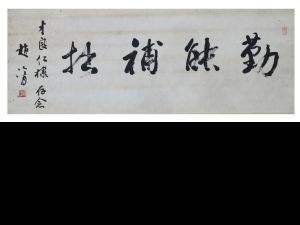 勤能補拙
才良仁棣存念
趙少昂